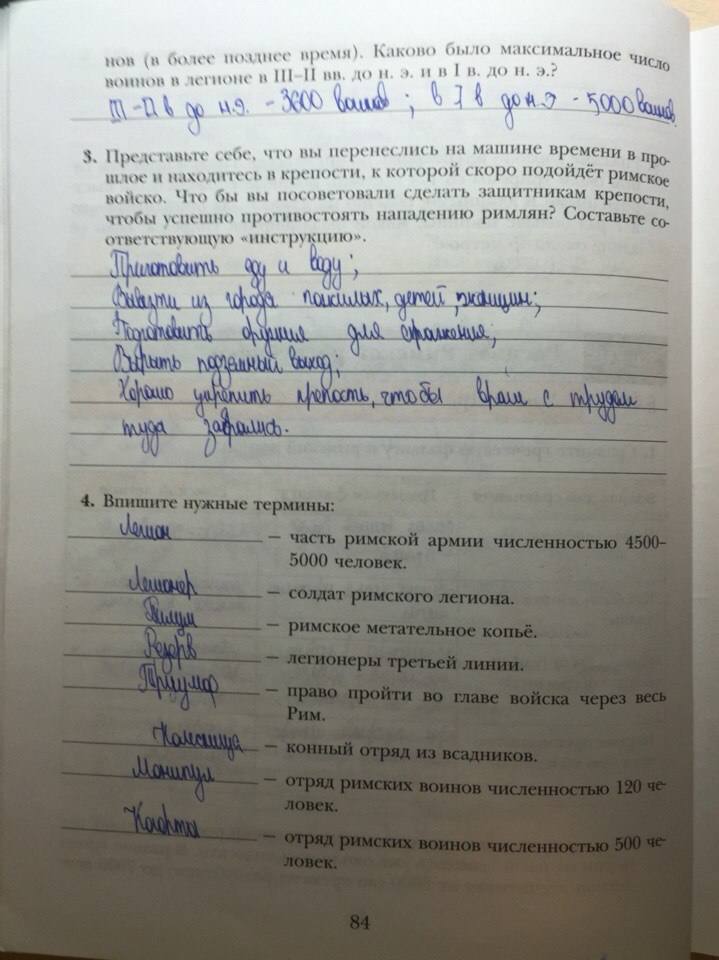 нов (в более позднее время). Каково было максимальное число
воинов в легионе в III–II вв. до н. э. и в I в. до н. э.?
III – II в до н.э. - 3600 воинов ; в I в до н.э - 5000 воинов.
3. Представьте себе, что вы перенеслись на машине времени в про-
шлое и находитесь в крепости, к которой скоро подойдёт римское
войско. Что бы вы посоветовали сделать защитникам крепости,
чтобы успешно противостоять нападению римлян? Составьте со-
ответствующую «инструкцию».
Приготовить еду и воду;
Вывезти из города пожилых, детей, женщин;
Подготовить оружие для сражения;
Вырыть подземный выход;
Хорошо укрепить крепость, чтобы враги с трудом
туда забрались.
4. Впишите нужные термины:
Легион — часть римской армии численностью 4500–
5000 человек.
Легионер — солдат римского легиона.
Пилум — римское метательное копьё.
Резерв — легионеры третьей линии.
Триумф — право пройти во главе войска через весь
Рим.
— конный отряд из всадников.
Манипул — отряд римских воинов численностью 120 че-
ловек.
Когорта — отряд римских воинов численностью 500 че-
ловек.
84